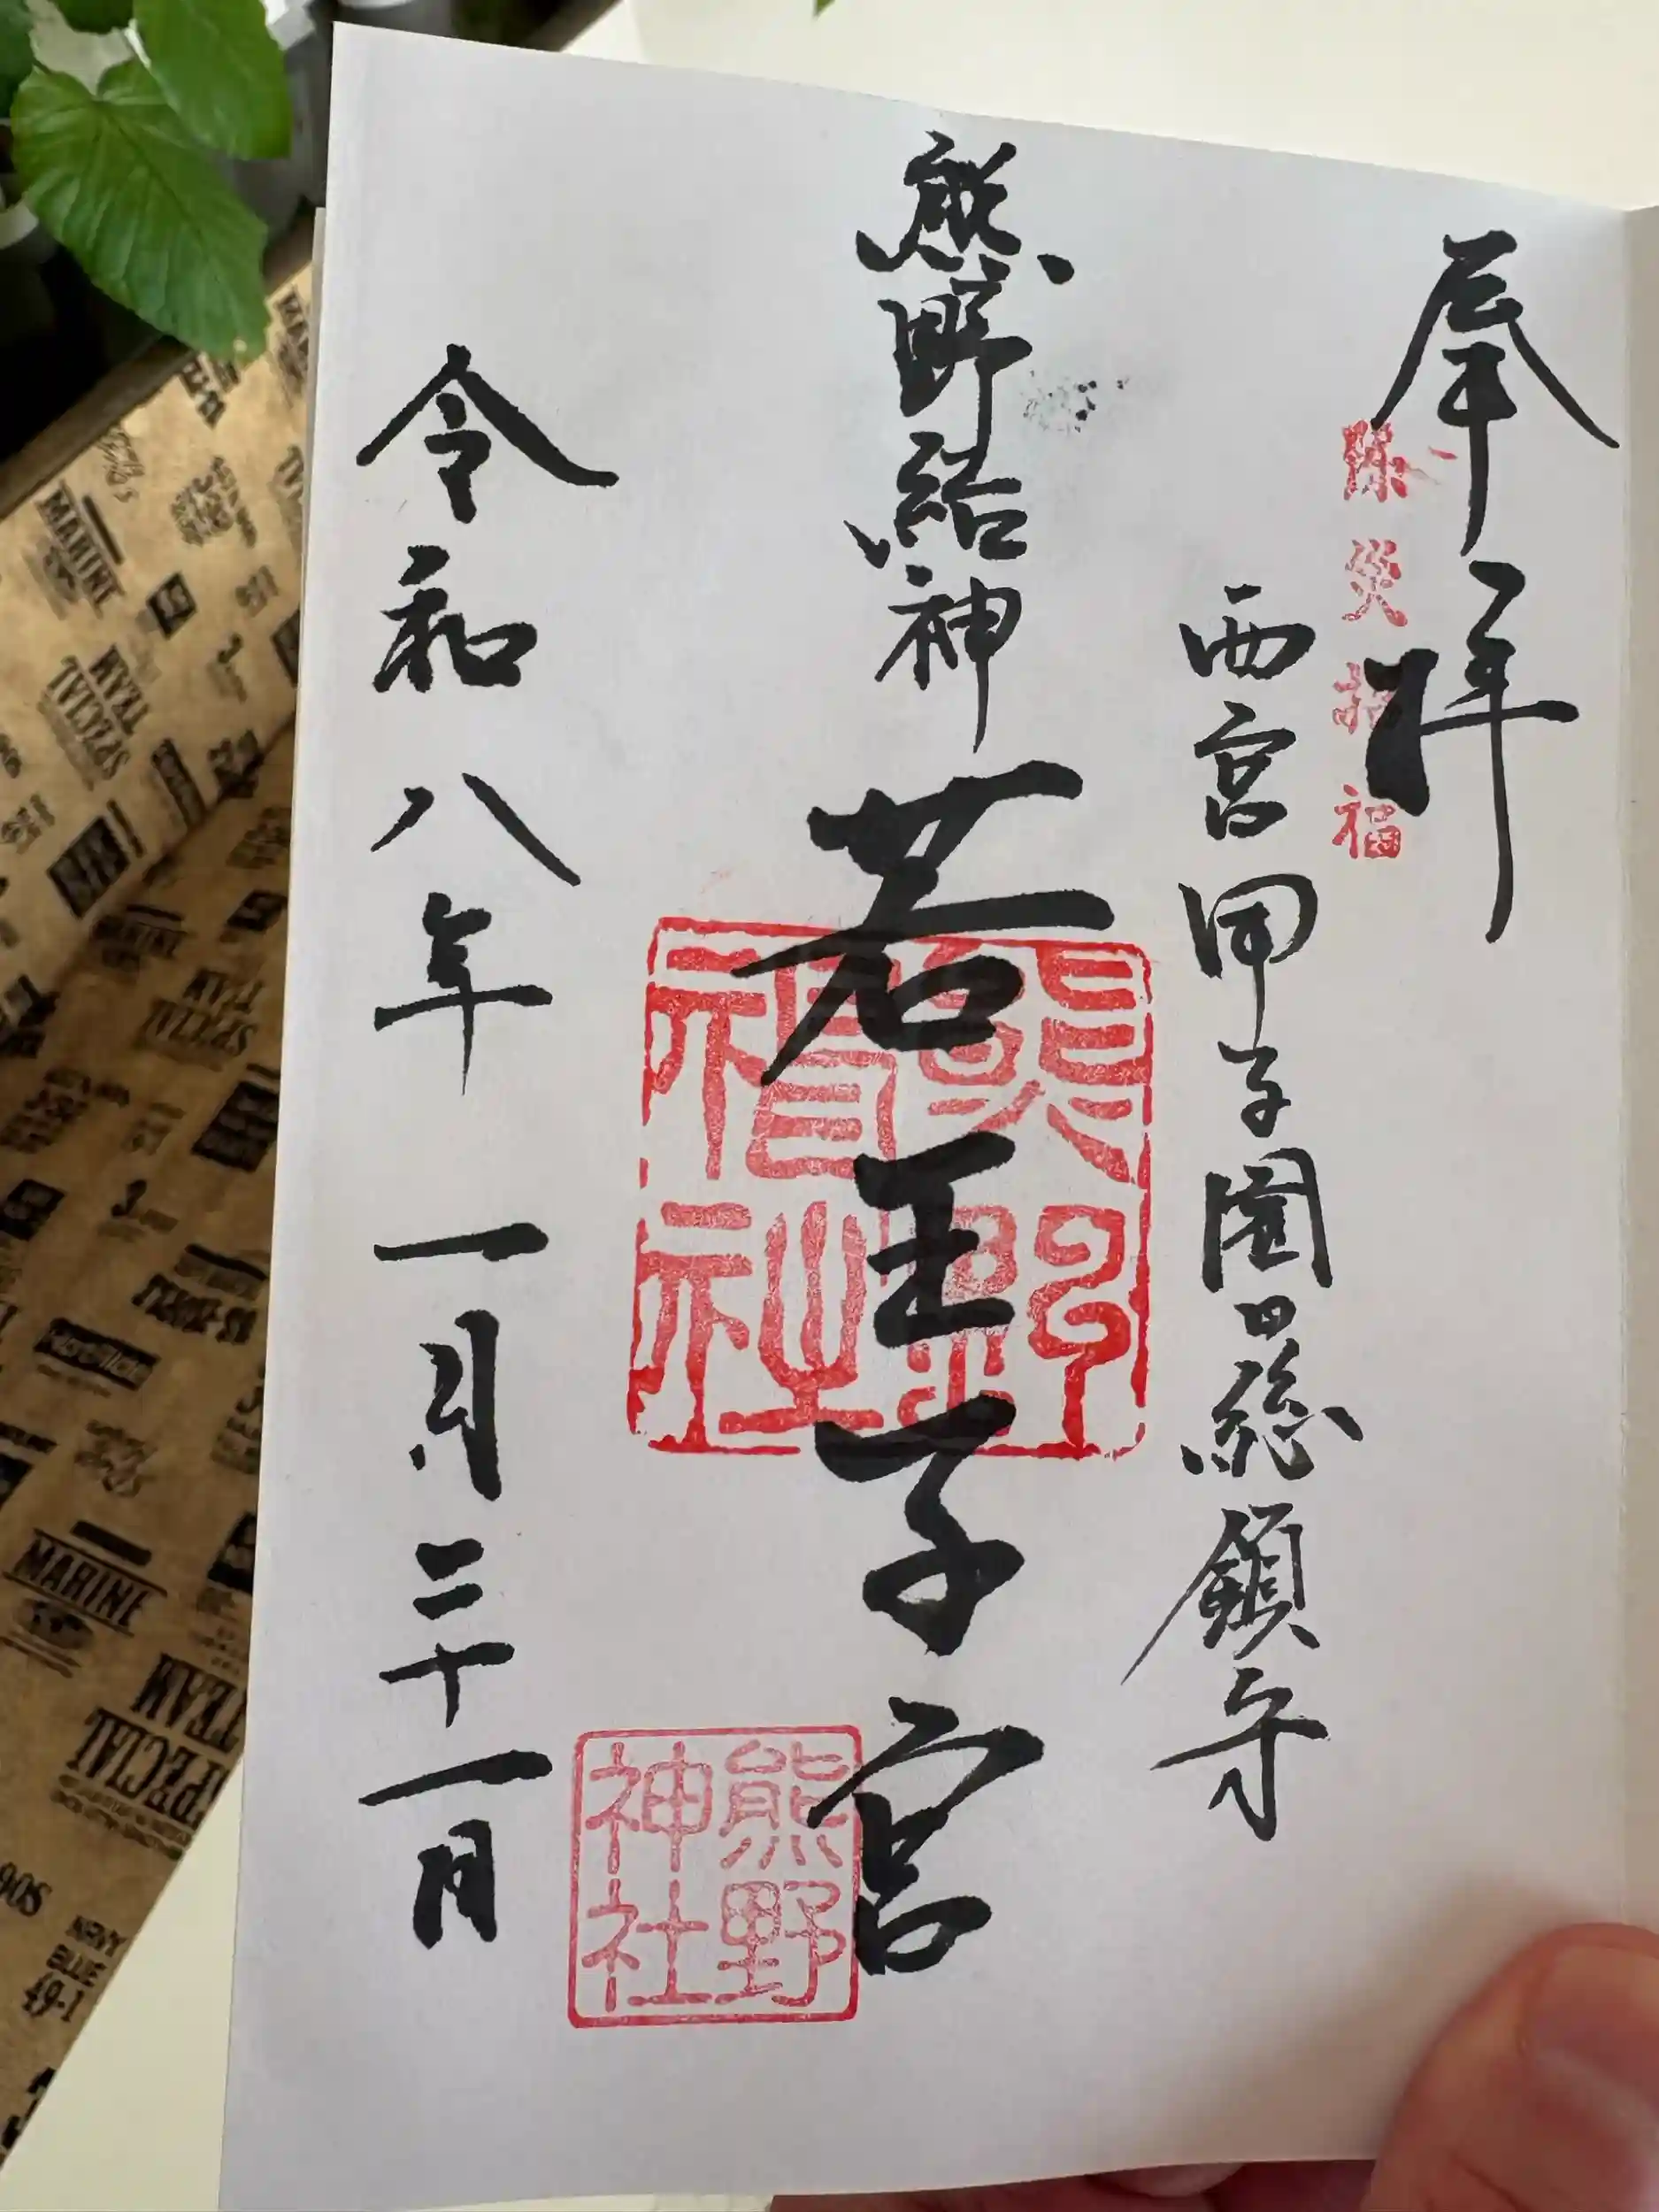 奉拝
除災招福
西宮甲子園口総鎮守
熊野結神 若王子宮
熊野神社
熊野神社
令和八年 一月二十一日
MARINE
SPECIAL
TEAM
MARINE
SPECIAL
TEAM
MARINE
SPECIAL
TEAM